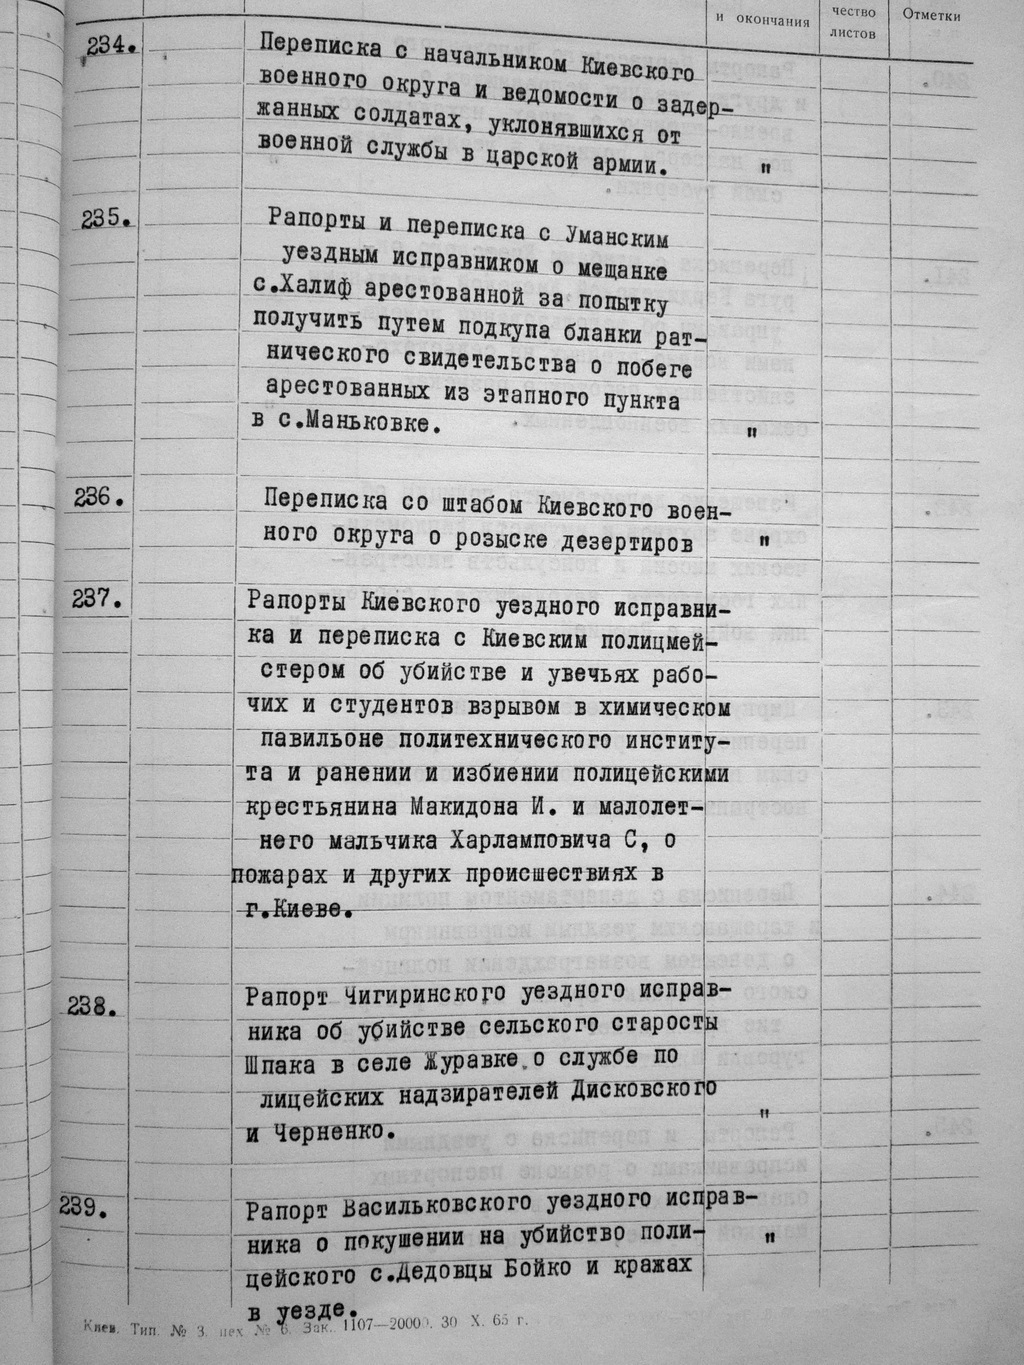 и окончания
чество
листов
Отметки
234.
Переписка с начальником Киевского
военного округа и ведомости о задер-
жанных солдатах, уклонявшихся от
военной службы в царской армии. "
235.
Рапорты и переписка с Уманским
уездным исправником о мещанке
с.Халиф арестованной за попытку
получить путем подкупа бланки рат-
нического свидетельства о побеге
арестованных из этапного пункта
в с.Маньковке. "
236.
Переписка со штабом Киевского воен-
ного округа о розыске дезертиров "
237.
Рапорты Киевского уездного исправни-
ка и переписка с Киевским полицмей-
стером об убийстве и увечьях рабо-
чих и студентов взрывом в химическом
павильоне политехнического институ-
та и ранении и избиении полицейскими
крестьянина Макидона И. и малолет-
него мальчика Харламповича С, о
пожарах и других происшествиях в
г.Киеве.
238.
Рапорт Чигиринского уездного исправ-
ника об убийстве сельского старосты
Шпака в селе Журавке о службе по
лицейских надзирателей Дисковского
и Черненко. "
239.
Рапорт Васильковского уездного исправ-
ника о покушении на убийство поли- "
цейского с.Дедовцы Бойко и кражах
в уезде.
Киев. Тип. № 3. цех № 6. Зак. 1107—20000. 30 X. 65 г.